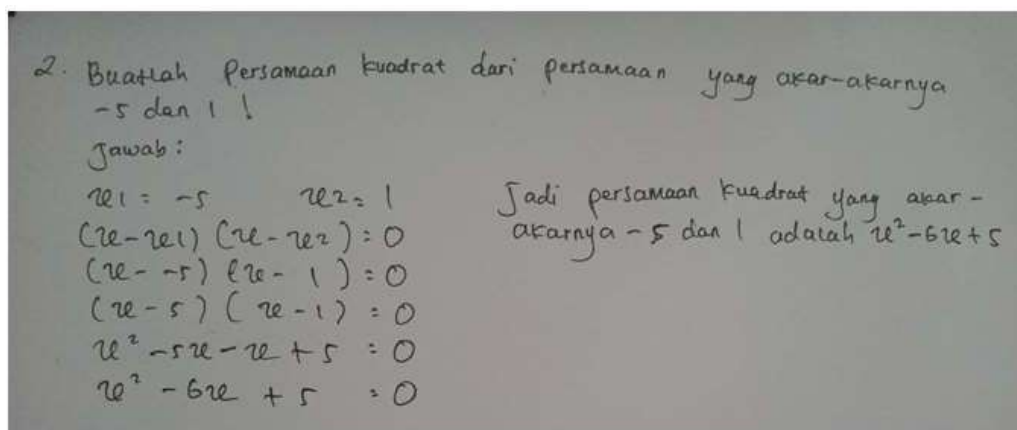 2. Buatlah Persamaan kuadrat dari persamaan yang akar-akarnya
-5 dan 1 !
Jawab :
x1 = -5 x2 = 1
(x-x1) (x-x2) = 0
(x- -5) (x- 1) = 0
(x-5) (x-1) = 0
x² -5x-x+5 = 0
x² -6x + 5 = 0
Jadi persamaan kuadrat yang akar-
akarnya -5 dan 1 adalah x²-6x+5